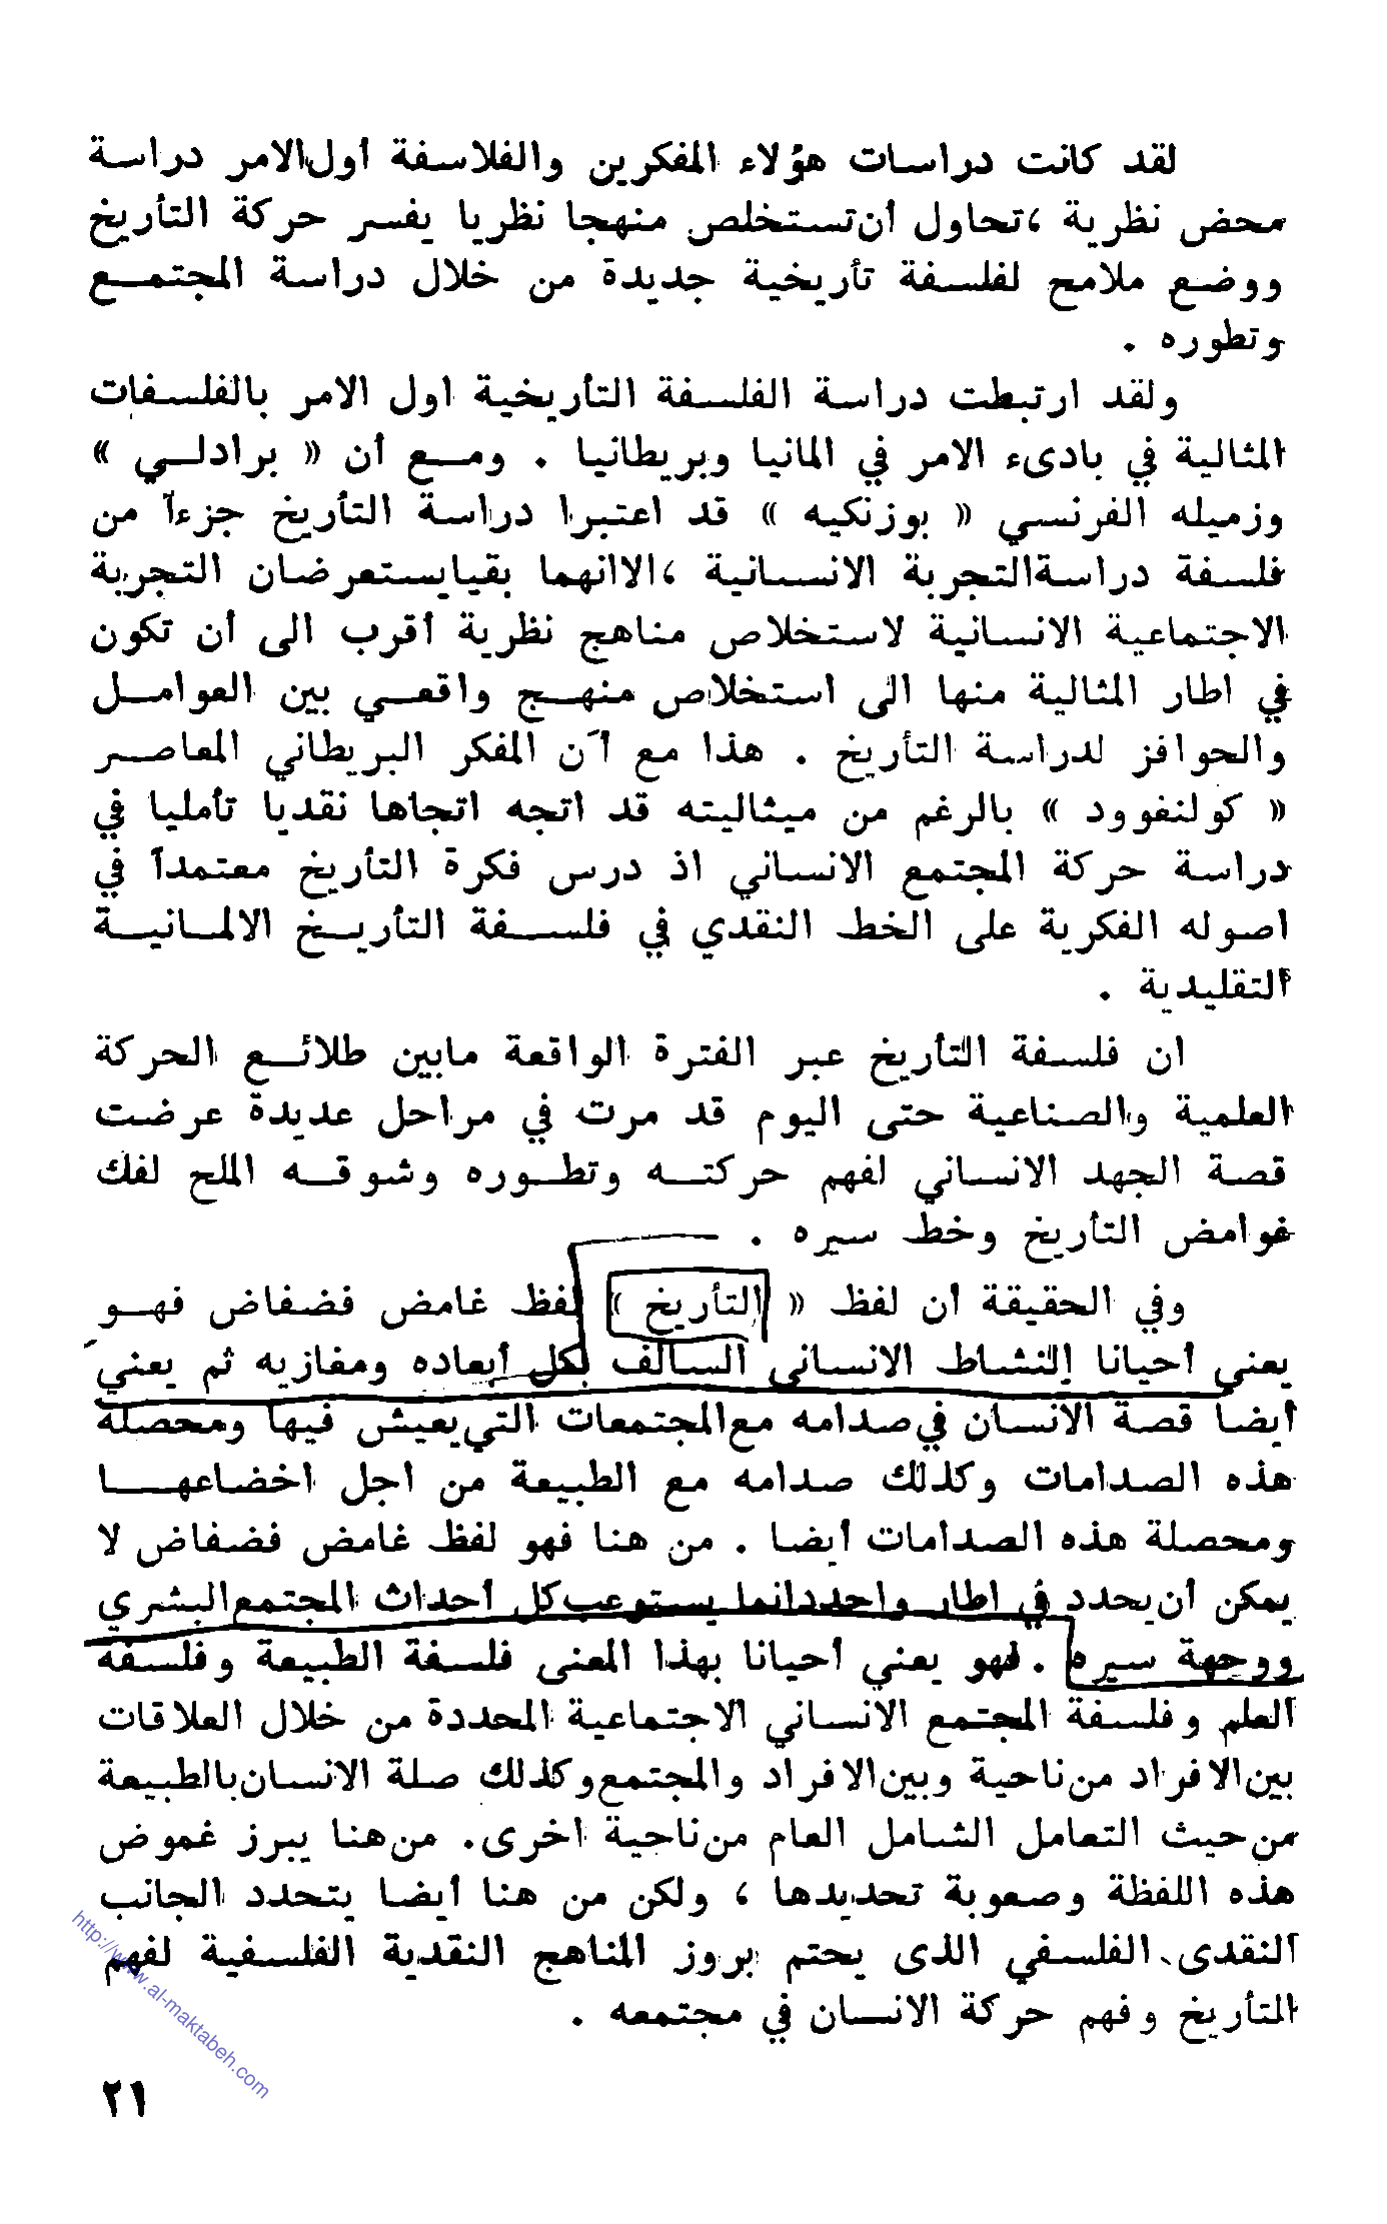 لقد كانت دراسات هؤلاء المفكرين والفلاسفة أول الامر دراسة
محض نظرية ،تحاول أن تستخلص منهجا نظريا يفسر حركة التأريخ
ووضع ملامح لفلسفة تأريخية جديدة من خلال دراسة المجتمع
وتطوره .
ولقد ارتبطت دراسة الفلسفة التأريخية اول الامر بالفلسفات
المثالية في بادىء الامر في المانيا وبريطانيا . ومع أن « برادلي »
وزميله الفرنسي « بوزنكيه » قد اعتبرا دراسة التأريخ جزءاً من
فلسفة دراسة التجربة الانسانية ،الا انهما بقيا يستعرضان التجربة
الاجتماعية الانسانية لاستخلاص مناهج نظرية أقرب الى أن تكون
في اطار المثالية منها الى استخلاص منهج واقعي بين العوامل
والحوافز لدراسة التأريخ . هذا مع أن المفكر البريطاني المعاصر
« كولنفوود » بالرغم من ميثاليته قد اتجه اتجاها نقديا تأمليا في
دراسة حركة المجتمع الانساني اذ درس فكرة التأريخ معتمداً في
اصوله الفكرية على الخط النقدي في فلسفة التأريخ الالمانية
التقليدية .
ان فلسفة التأريخ عبر الفترة الواقعة مابين طلائع الحركة
العلمية والصناعية حتى اليوم قد مرت في مراحل عديدة عرضت
قصة الجهد الانساني لفهم حركته وتطوره وشوقه الملح لفك
غوامض التأريخ وخط سيره .
وفي الحقيقة أن لفظ « التأريخ » لفظ غامض فضفاض فهو
يعني أحيانا النشاط الانساني السالف بكل أبعاده ومغازيه ثم يعني
أيضا قصة الانسان في صدامه مع المجتمعات التي يعيش فيها ومحصلة
هذه الصدامات وكذلك صدامه مع الطبيعة من اجل اخضاعها
ومحصلة هذه الصدامات أيضا . من هنا فهو لفظ غامض فضفاض لا
يمكن أن يحدد في اطار واحد دانما يستوعب كل أحداث المجتمع البشري
ووجهة سيره . فهو يعني أحيانا بهذا المعنى فلسفة الطبيعة وفلسفة
العلم وفلسفة المجتمع الانساني الاجتماعية المحددة من خلال العلاقات
بين الافراد من ناحية وبين الافراد والمجتمع وكذلك صلة الانسان بالطبيعة
من حيث التعامل الشامل العام من ناحية اخرى . من هنا يبرز غموض
هذه اللفظة وصعوبة تحديدها ، ولكن من هنا أيضا يتحدد الجانب
النقدى الفلسفي الذى يحتم بروز المناهج النقدية الفلسفية لفهم
التأريخ وفهم حركة الانسان في مجتمعه .
٢١
http://www.al-maktabeh.com